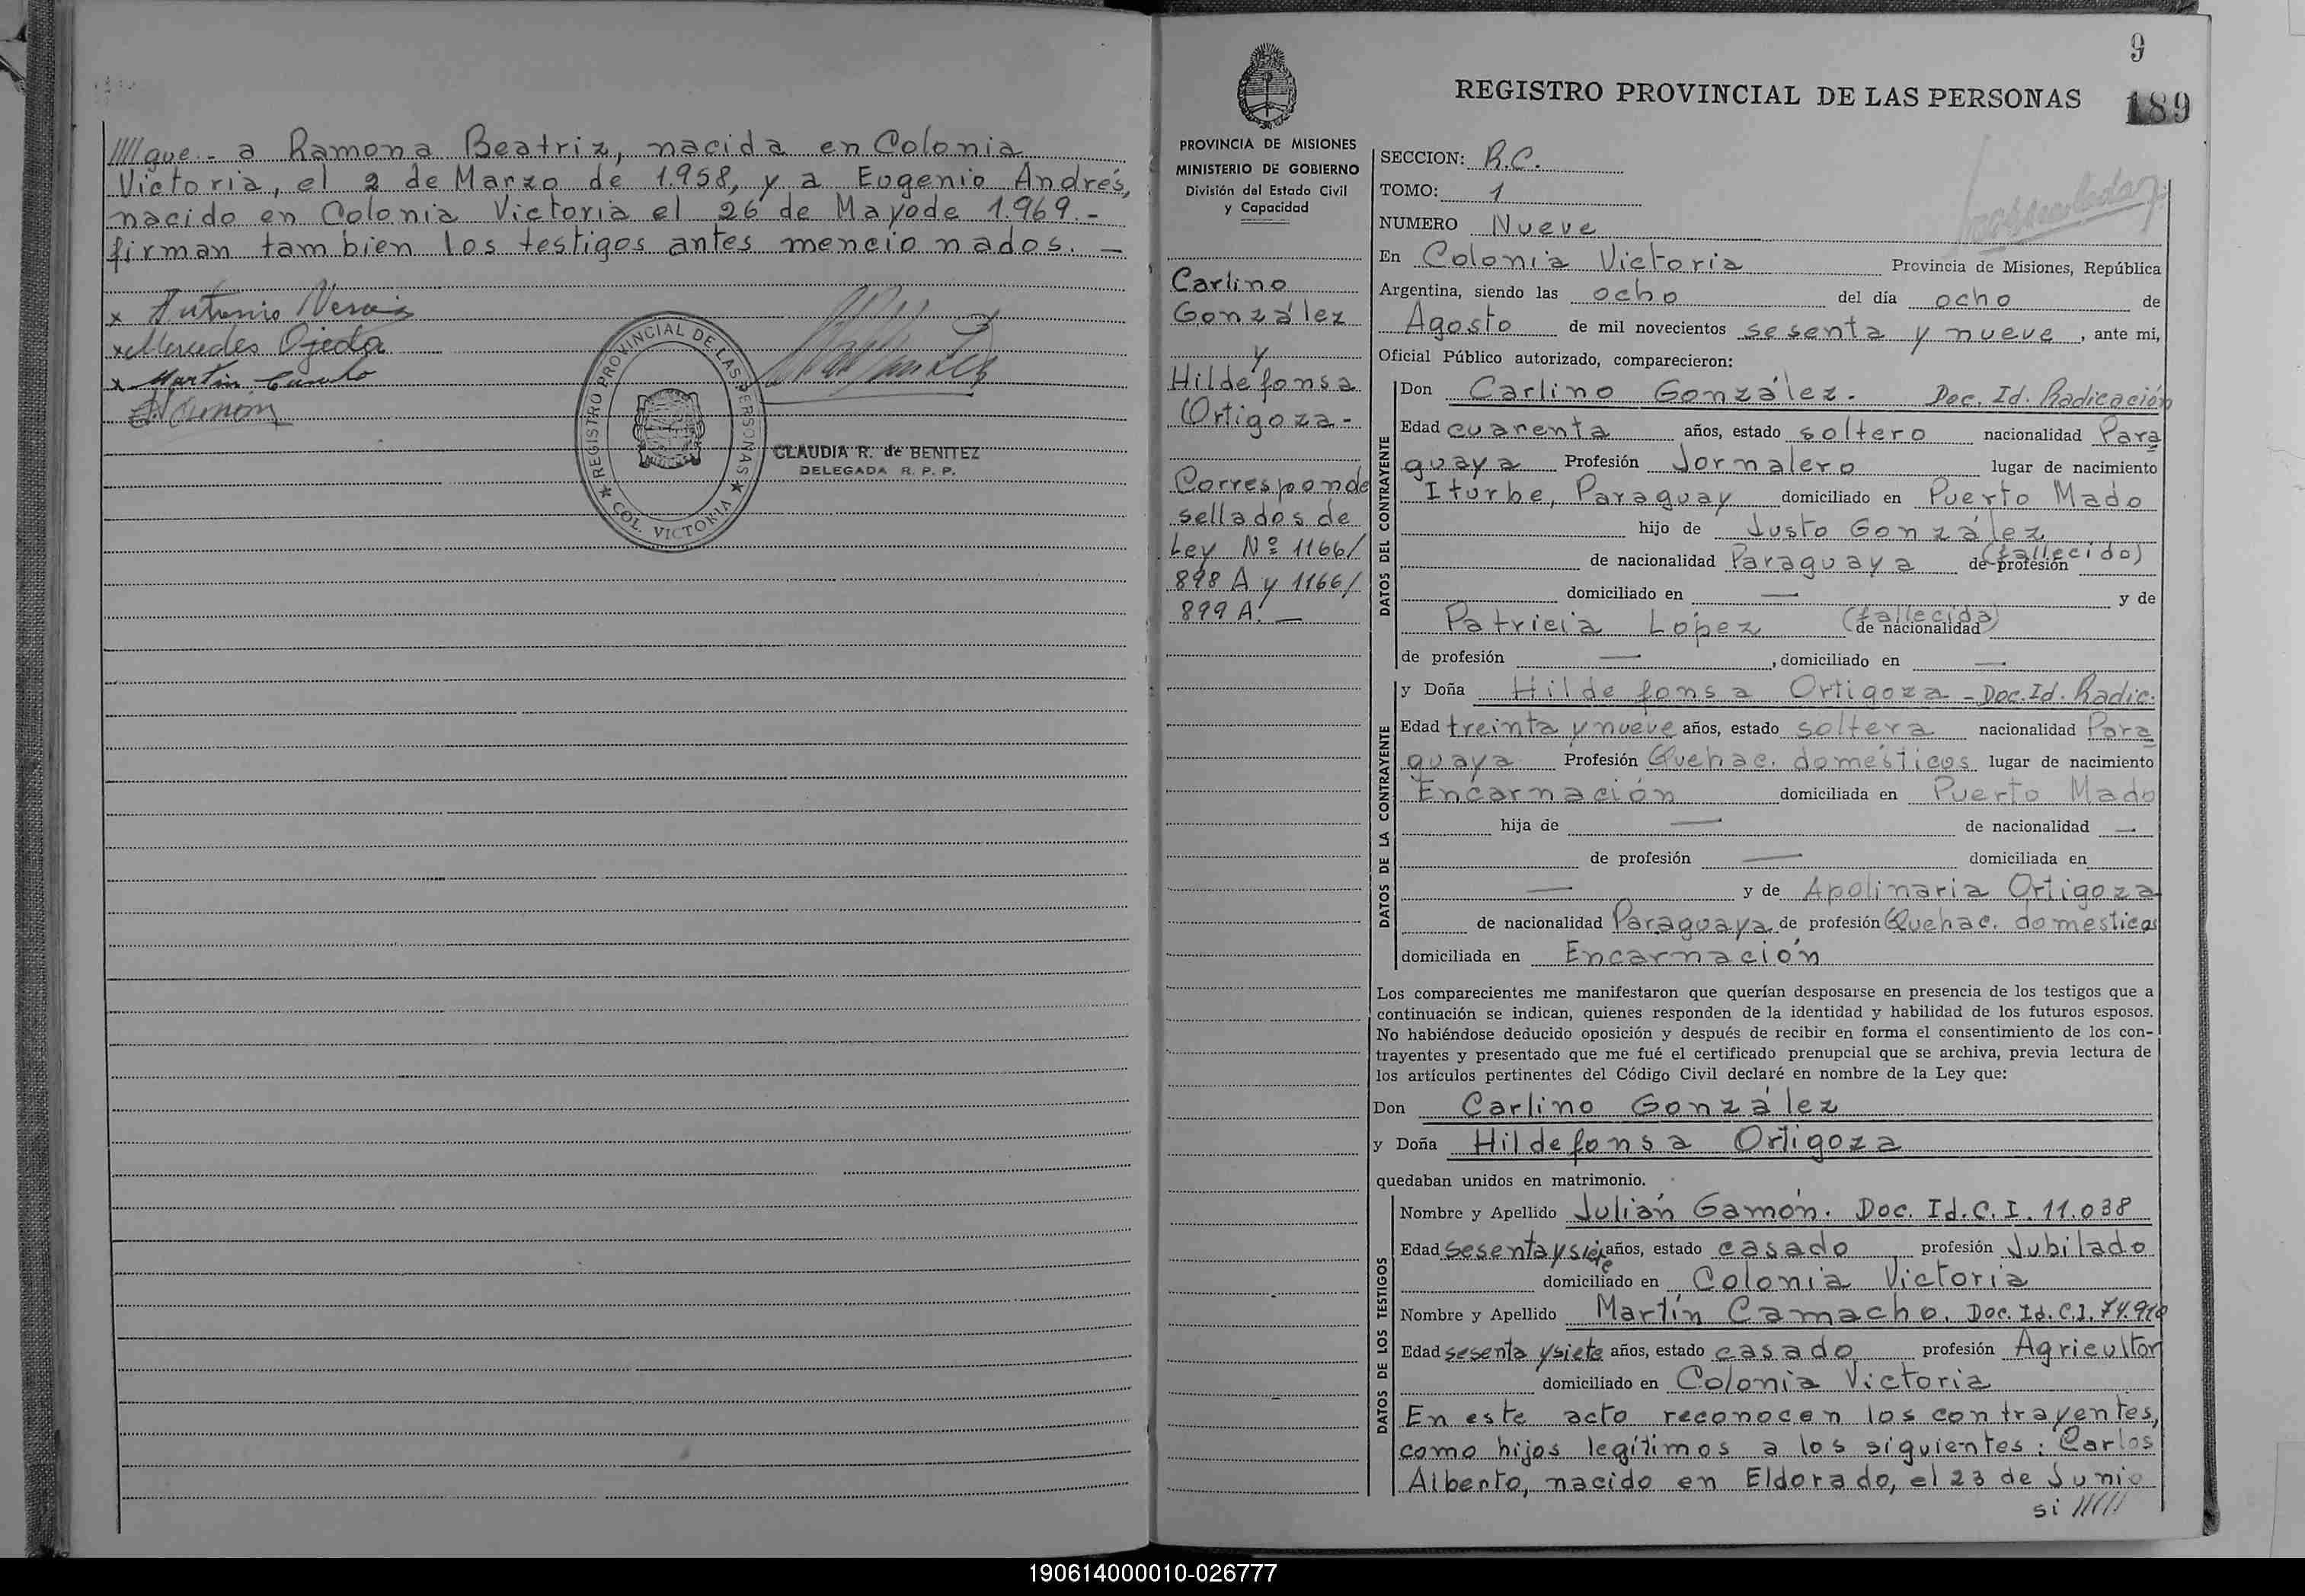 //// gue.- a Ramona Beatriz, nacida en Colonia
Victoria, el 2 de Marzo de 1.958, y a Eugenio Andrés,
nacido en Colonia Victoria el 26 de Mayo de 1.969.-
firman tambien los testigos antes mencionados. —
x Antonio
x Mercedes Ojeda
x Martin
REGISTRO PROVINCIAL DE LAS PERSONAS
COL. VICTORIA
CLAUDIA R. de BENITEZ
DELEGADA R. P. P.
9
189
REGISTRO PROVINCIAL DE LAS PERSONAS
PROVINCIA DE MISIONES
MINISTERIO DE GOBIERNO
División del Estado Civil
y Capacidad
Carlino
González
y
Hildefonsa
Ortigoza-
Corresponde
sellados de
Ley Nº 1166/
898 A y 1166/
899 A. —
SECCION: R.C.
TOMO: 1
NUMERO Nueve
En Colonia Victoria Provincia de Misiones, República
Argentina, siendo las ocho del día ocho de
Agosto de mil novecientos sesenta y nueve, ante mi,
Oficial Público autorizado, comparecieron:
DATOS DEL CONTRAYENTE
Don Carlino González. Doc. Id. Radicación
Edad cuarenta años, estado soltero nacionalidad Para
guaya Profesión Jornalero lugar de nacimiento
Iturbe, Paraguay domiciliado en Puerto Mado
hijo de Justo González
(fallecido)
de nacionalidad Paraguaya de profesión
domiciliado en — y de
Patricia López (fallecida) de nacionalidad
de profesión —, domiciliado en —
DATOS DE LA CONTRAYENTE
y Doña Hildefonsa Ortigoza - Doc. Id. Radic.
Edad treinta y nueve años, estado soltera nacionalidad Para
guaya Profesión Quehac. domésticos lugar de nacimiento
Encarnación domiciliada en Puerto Mado
hija de — de nacionalidad —
de profesión — domiciliada en
— y de Apolinaria Ortigoza
de nacionalidad Paraguaya de profesión Quehac. domesticos
domiciliada en Encarnación
Los comparecientes me manifestaron que querían desposarse en presencia de los testigos que a
continuación se indican, quienes responden de la identidad y habilidad de los futuros esposos.
No habiéndose deducido oposición y después de recibir en forma el consentimiento de los con-
trayentes y presentado que me fué el certificado prenupcial que se archiva, previa lectura de
los artículos pertinentes del Código Civil declaré en nombre de la Ley que:
Don Carlino González
y Doña Hildefonsa Ortigoza
quedaban unidos en matrimonio.
DATOS DE LOS TESTIGOS
Nombre y Apellido Julián Gamón. Doc. Id. C. I. 11.038
Edad sesenta y siete años, estado casado profesión Jubilado
domiciliado en Colonia Victoria
Nombre y Apellido Martín Camacho. Doc. Id. C.I. 74.910
Edad sesenta y siete años, estado casado profesión Agricultor
domiciliado en Colonia Victoria
En este acto reconocen los contrayentes,
como hijos legítimos a los siguientes: Carlos
Alberto, nacido en Eldorado, el 23 de Junio
si /////
190614000010-026777